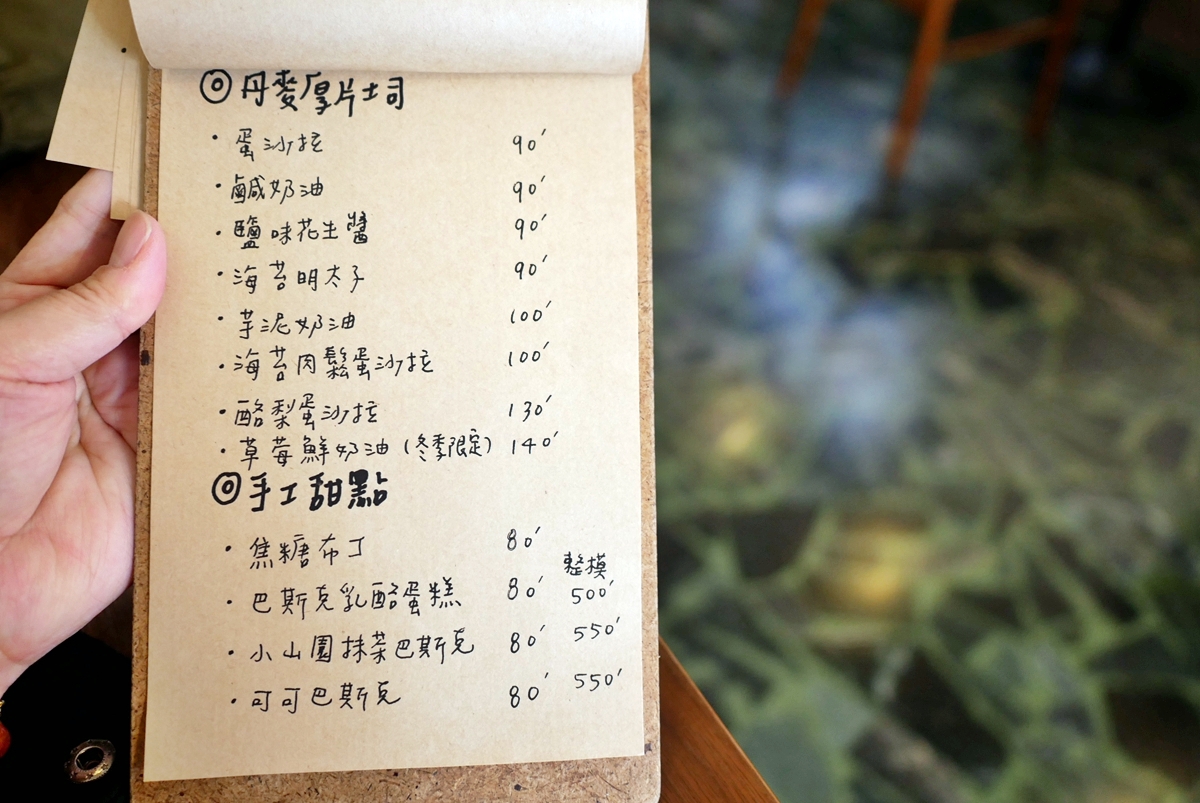 ◎丹麥厚片土司
・蛋沙拉 90'
・鹹奶油 90'
・鹽味花生醬 90'
・海苔明太子 90'
・芋泥奶油 100'
・海苔肉鬆蛋沙拉 100'
・酪梨蛋沙拉 130'
・草莓鮮奶油(冬季限定) 140'
◎手工甜點
・焦糖布丁 80'
整模
・巴斯克乳酪蛋糕 80' 500'
・小山園抹茶巴斯克 80' 550'
・可可巴斯克 80' 550'